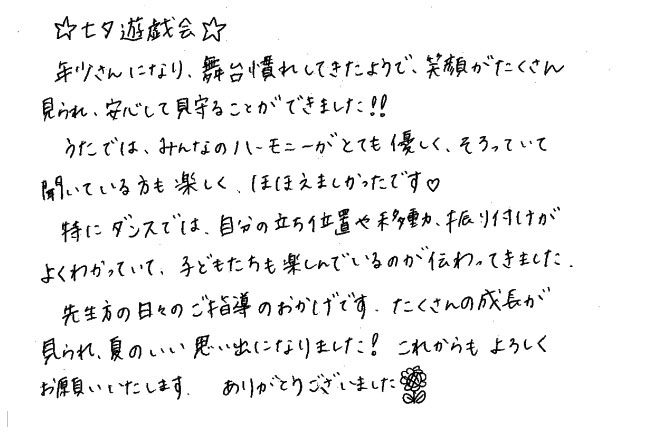 ☆七夕遊戯会☆
年少さんになり、舞台慣れしてきたようで、笑顔がたくさん
見られ、安心して見守ることができました!!
うたでは、みんなのハーモニーがとても優しく、そろっていて
聞いている方も楽しく、ほほえましかったです♡
特にダンスでは、自分の立ち位置や移動、振り付けが
よくわかっていて、子どもたちも楽しんでいるのが伝わってきました。
先生方の日々のご指導のおかげです。たくさんの成長が
見られ、夏のいい思い出になりました! これからもよろしく
お願いいたします。 ありがとうございました